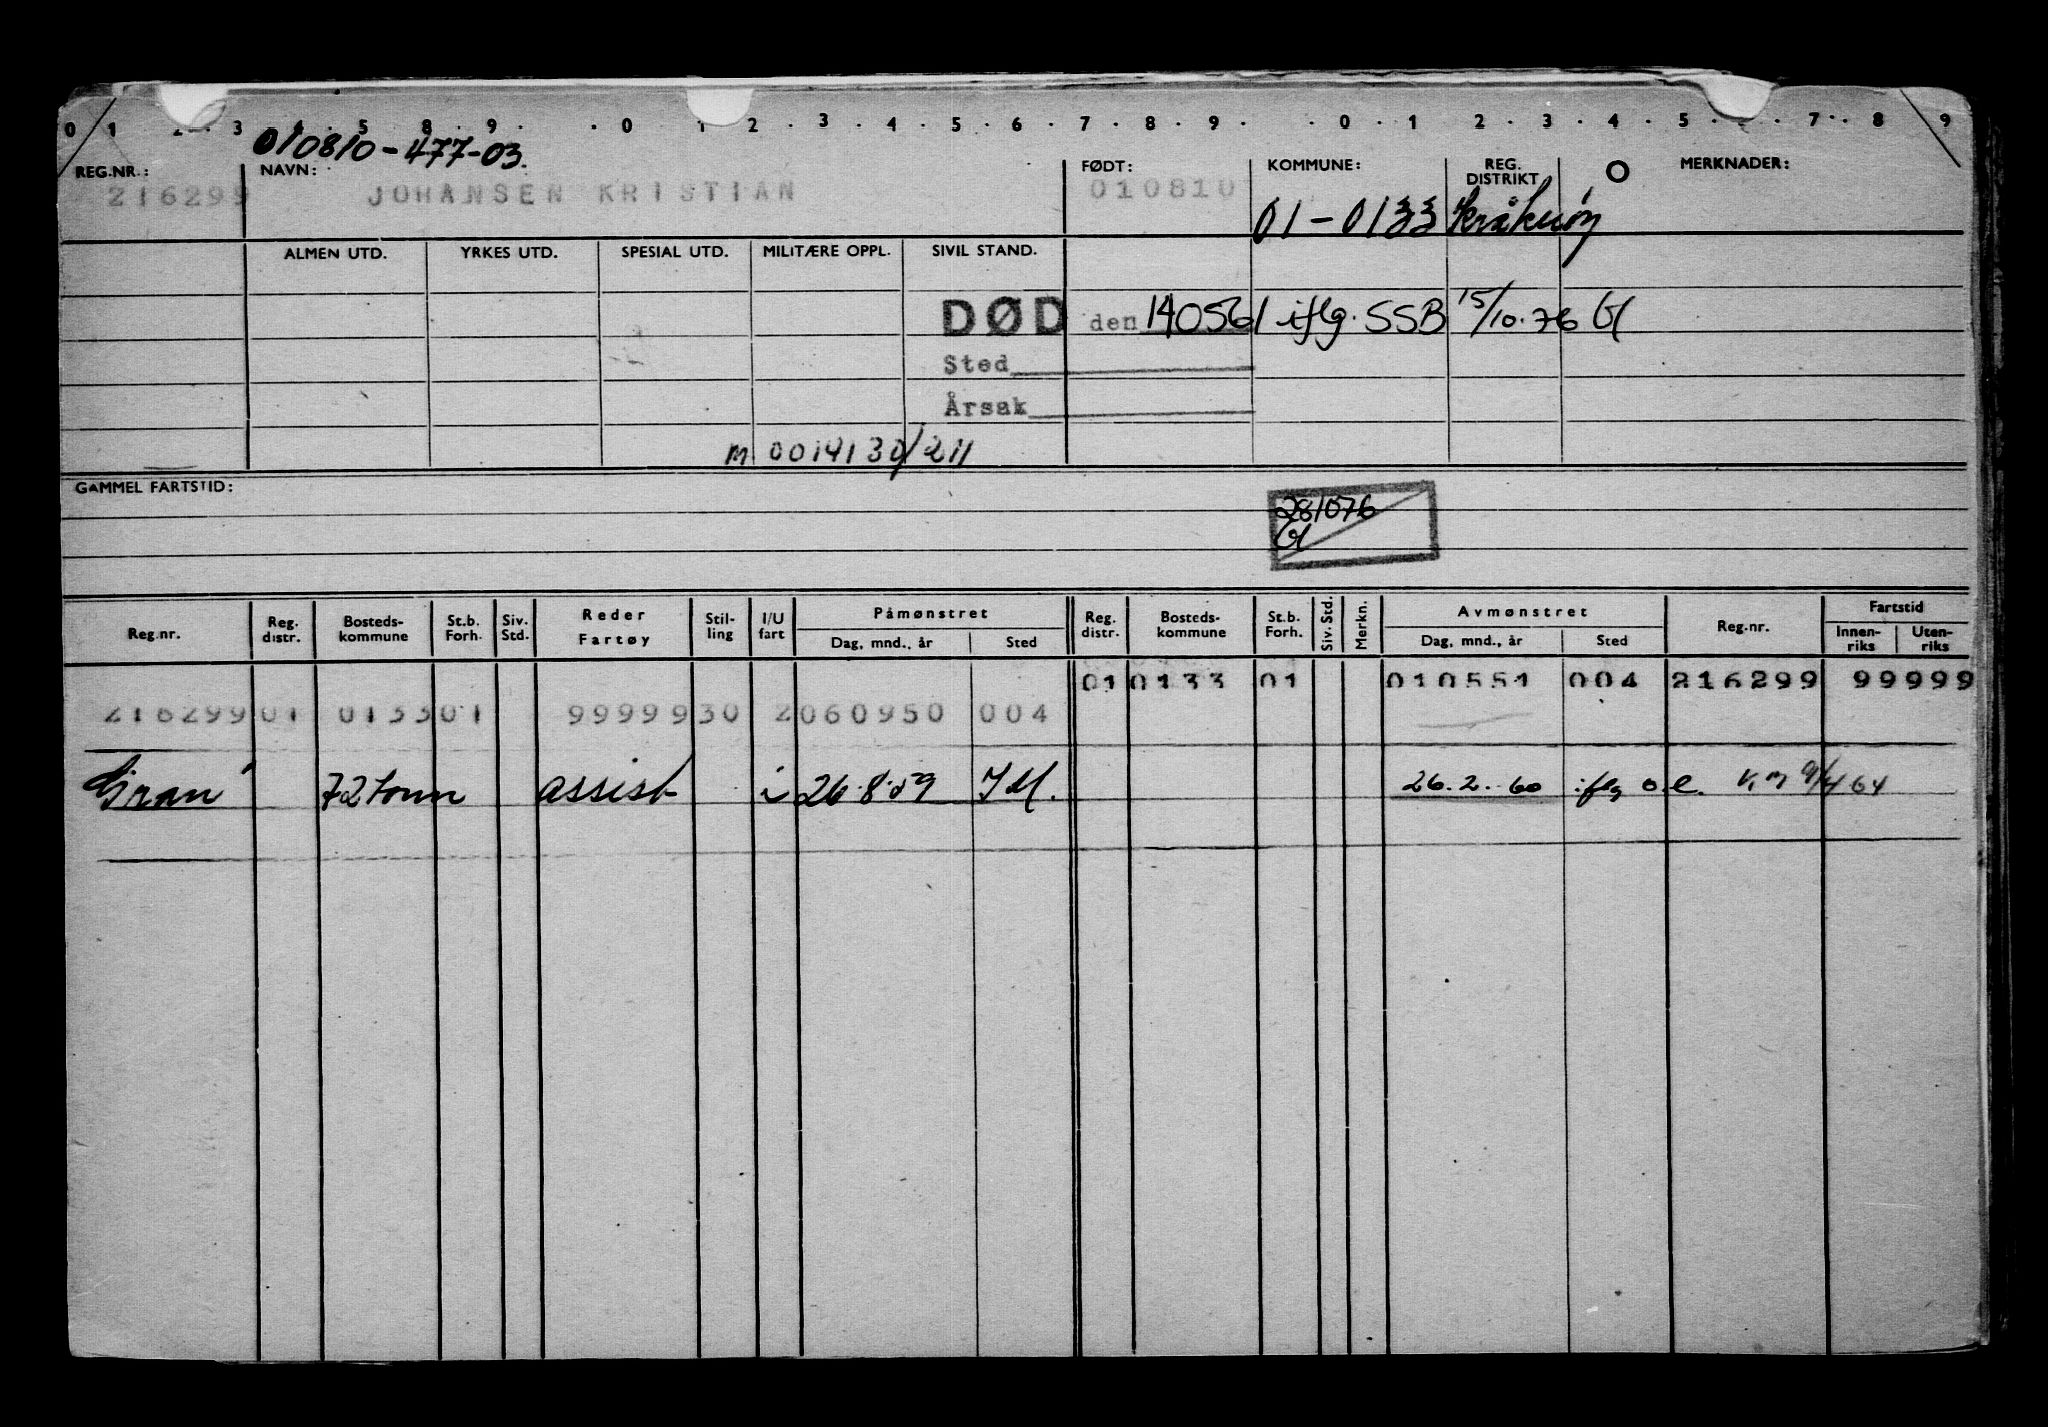 0 1 2 . 3 . 4 . 5 . 8 . 9 . . 0 . 1 2 . 3 . 4 . 5 . 6 . 7 . 8 . 9 . . 0 . 1 . 2 . 3 . 4 . 5 . . 7 . 8 . 9
010810-477-03.
REG.NR.: NAVN: FØDT: KOMMUNE: REG. DISTRIKT MERKNADER:
216299 JOHANSEN KRISTIAN 010810
01-0133 Kråkerøy
ALMEN UTD. YRKES UTD. SPESIAL UTD. MILITÆRE OPPL. SIVIL STAND.
DØD den 140561 iflg. SSB 15/10.76
Sted
Årsak
m 0014130/211
GAMMEL FARTSTID:
281076
Reg.nr. Reg. distr. Bosteds-kommune St.b. Forh. Siv. Std. Reder Fartøy Stil-ling I/U fart Påmønstret Dag, mnd., år Sted Reg. distr. Bosteds-kommune St.b. Forh. Siv. Std. Merkn. Avmønstret Dag, mnd., år Sted Reg.nr. Fartstid Innen-riks Uten-riks
01 0133 01 010551 004 216299 99999
216299 01 0133 01 99999 30 2 060950 004
"Gran" 72 tonn assist i 26.8.59 I.M. 26.2.60 iflg o.l. KM 9/4 64